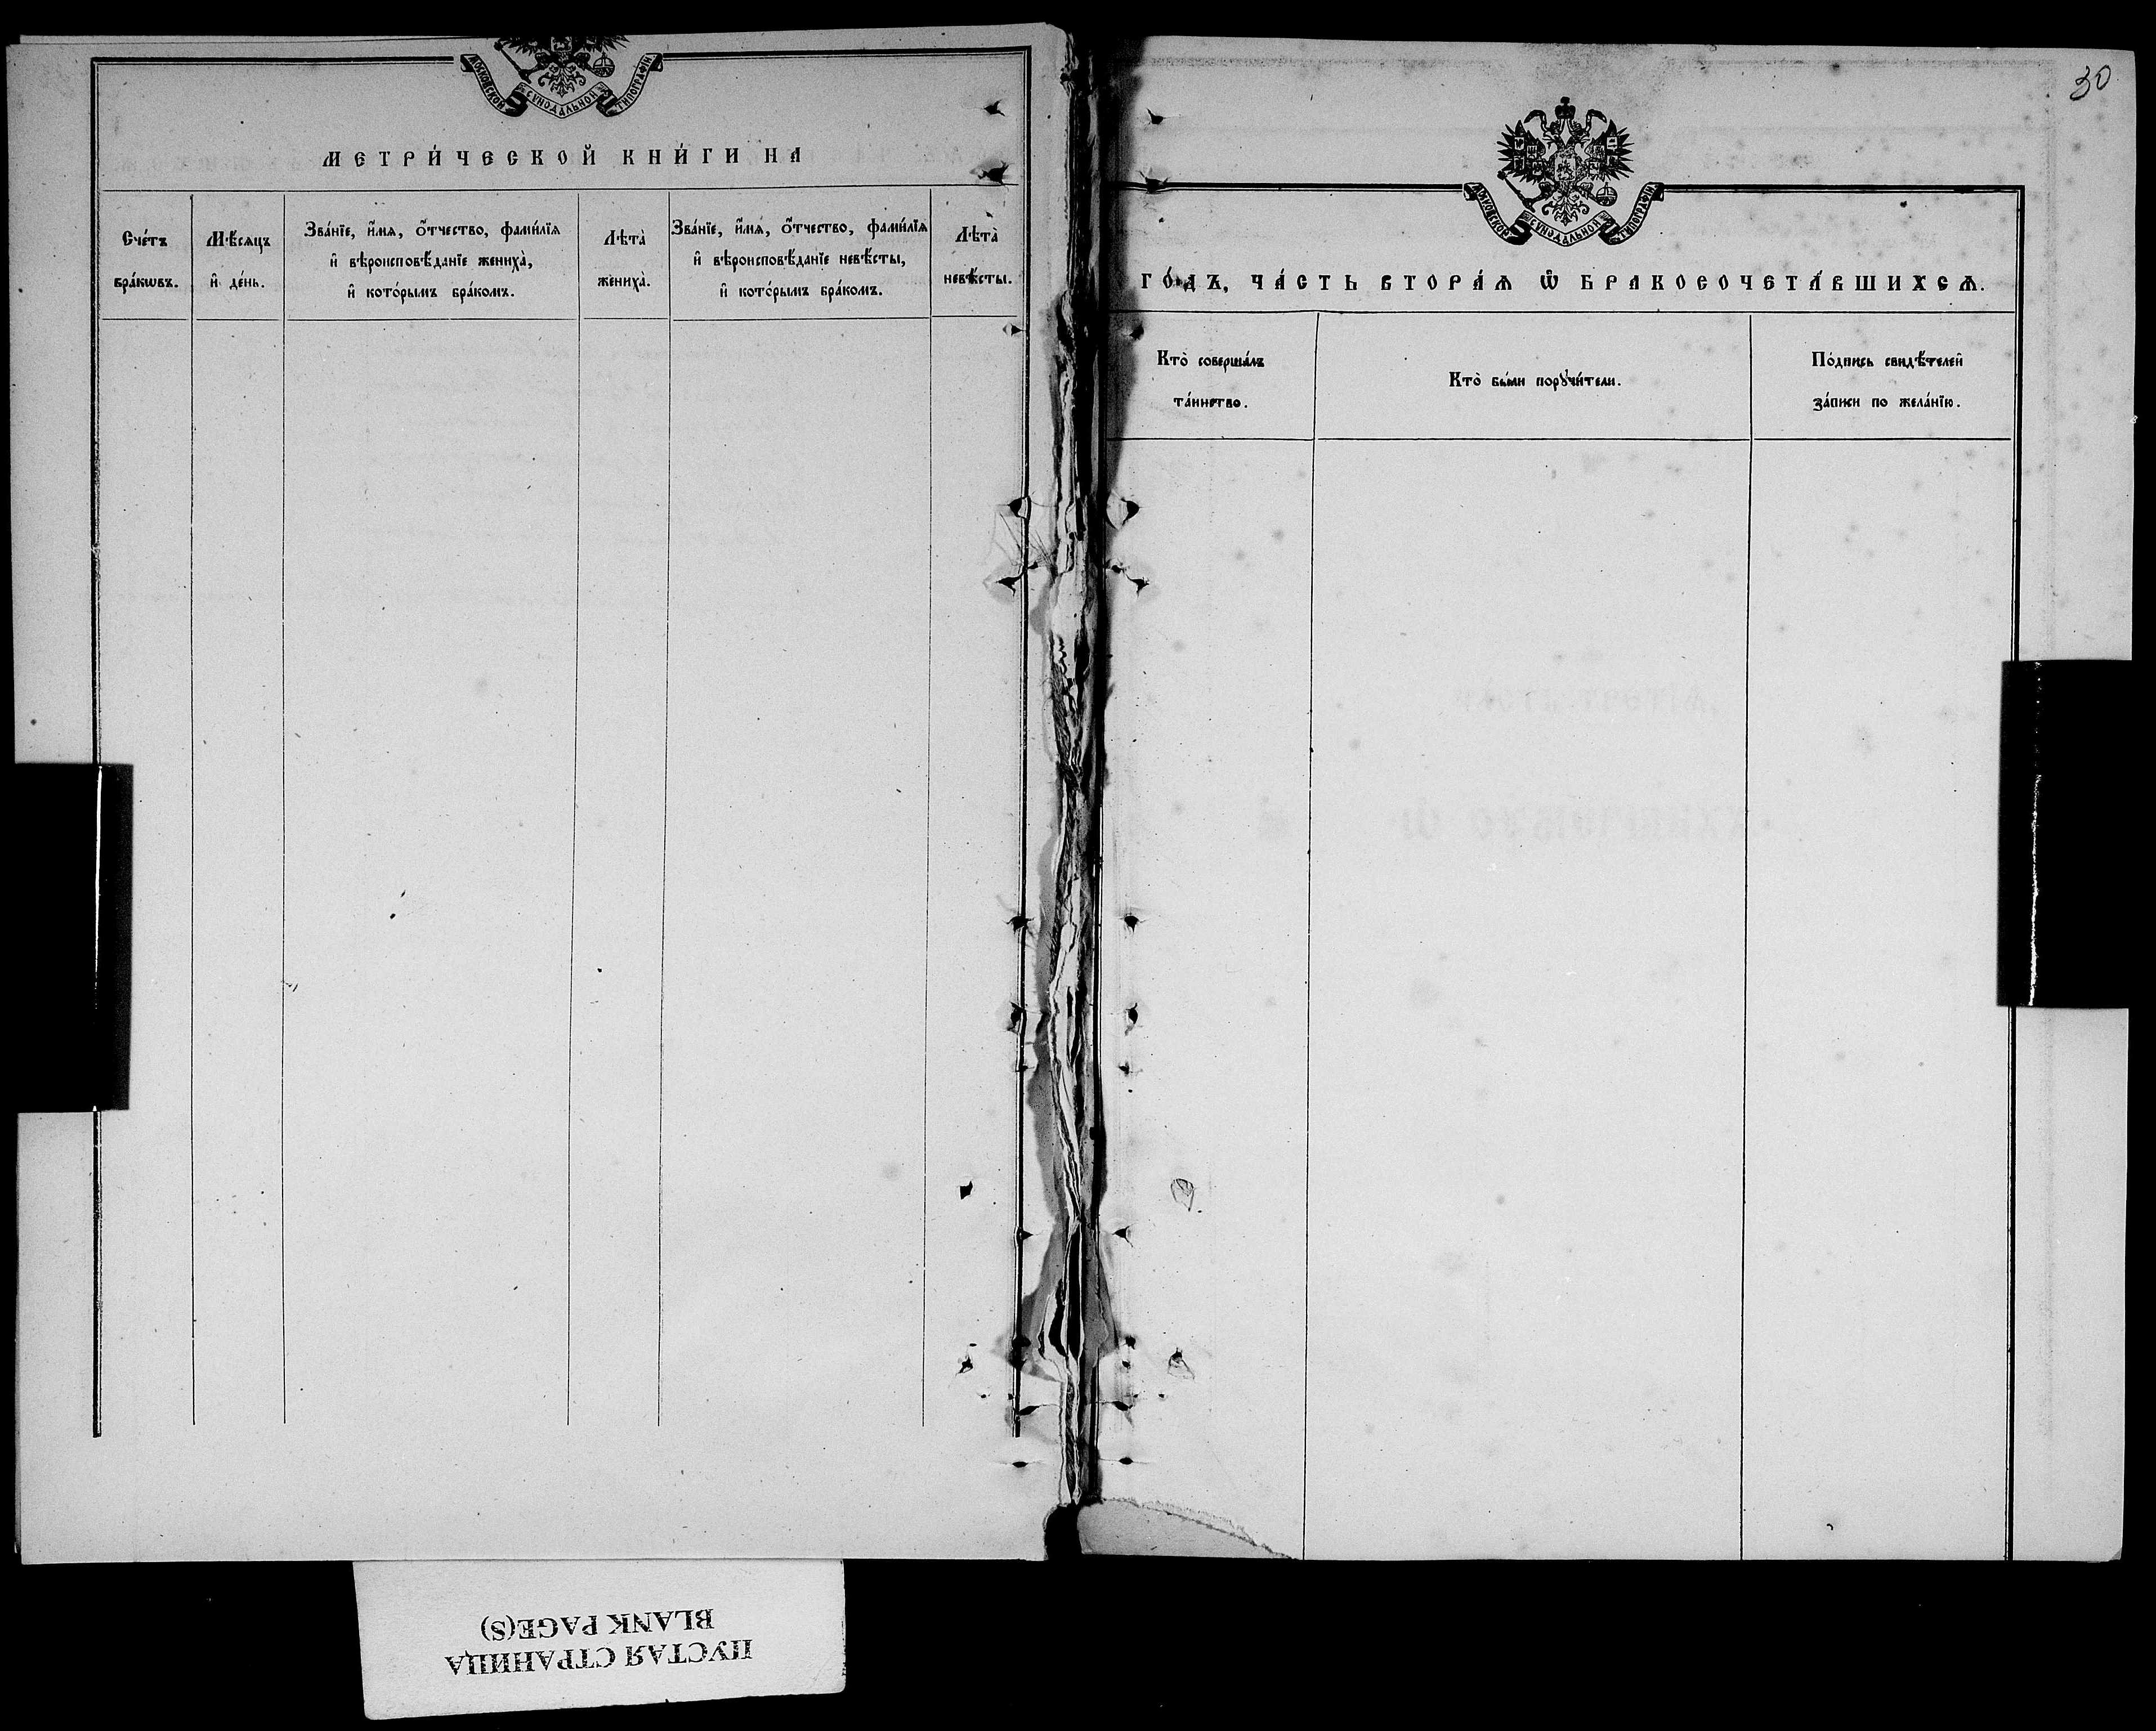 МОСКОВСКОЙ СѴНОДАЛЬНОЙ ТИПОГРАФІИ
МЕТРИ́ЧЕСКОЙ КНИ́ГИ НА
Сче́тъ
бра́кѡвъ.
Мѣ́сяцъ
и҆ де́нь.
Зва́нїе, и҆́мѧ, ѻ҆́тчество, фамѝлїѧ
и҆ вѣроисповѣ́данїе женихà,
и҆ кото́рымъ бра́комъ.
Лѣтà
женихà.
Зва́нїе, и҆́мѧ, ѻ҆́тчество, фамѝлїѧ
и҆ вѣроисповѣ́данїе невѣ́сты,
и҆ кото́рымъ бра́комъ.
Лѣтà
невѣ́сты.
30
МОСКОВСКОЙ СѴНОДАЛЬНОЙ ТИПОГРАФІИ
ГО́ДЪ, ЧА́СТЬ ВТОРА́Ѧ Ѡ҆ БРАКОСОЧЕТА́ВШИХСѦ.
Кто̀ соверша́лъ
та́инство.
Кто̀ бы́ли порꙋчи́тели.
По́дпись свидѣ́телей
за́писи по жела́нїю.
ПУСТАЯ СТРАНИЦА
BLANK PAGE(S)